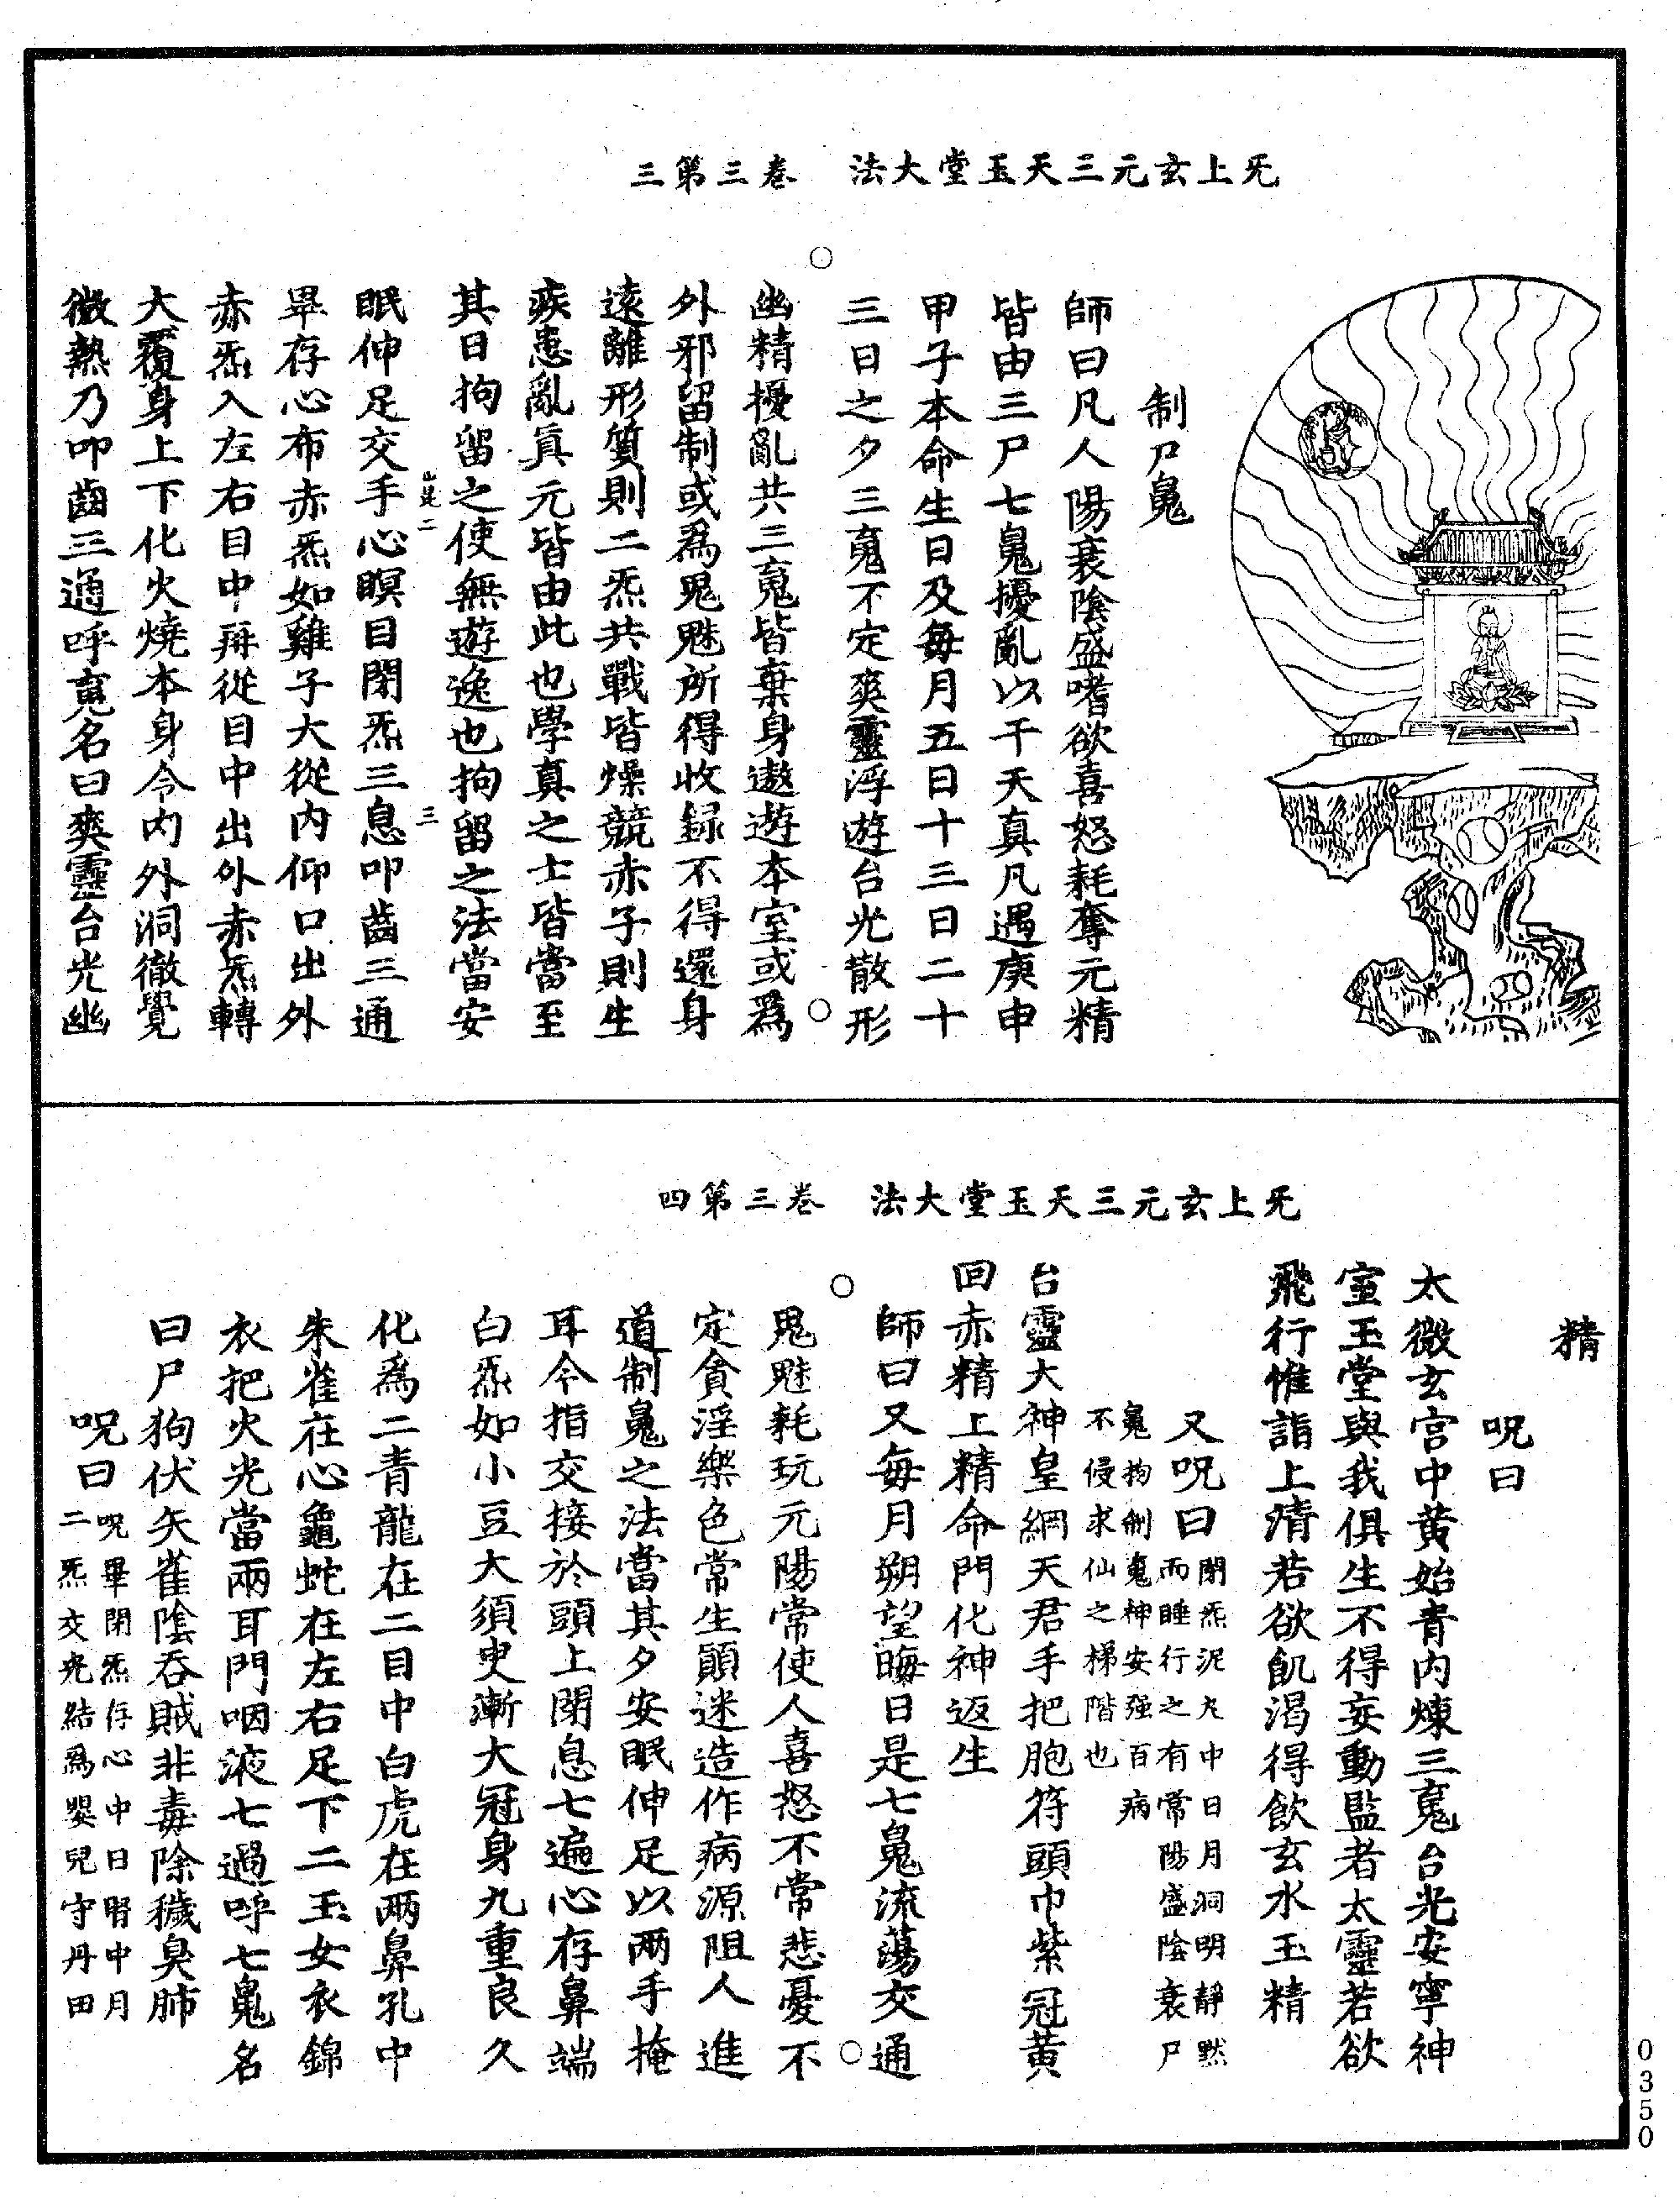 旡上玄元三天玉堂大法　卷三第三
制尸䰟
師曰凡人陽衰陰盛嗜欲喜怒耗奪元精
皆由三尸七䰟擾亂以干天真凡遇庚申
甲子本命生日及每月五日十三日二十
三日之夕三䰟不定爽靈浮遊台光散形
幽精擾亂共三䰟皆棄身遨遊本室或爲
外邪留制或爲鬼魅所得收録不得還身
遠離形質則二炁共戰皆燥競赤子則生
疾患亂真元皆由此也學真之士皆當至
其日拘留之使無遊逸也拘留之法當安
眠伸足交手心瞑目閉炁三息叩齒三通
畢存心布赤炁如雞子大從內仰口出外
赤炁入左右目中再從目中出外赤炁轉
大覆身上下化火燒本身令內外洞徹覺
微熱乃叩齒三通呼䰟名曰爽靈台光幽
旡上玄元三天玉堂大法　卷三第四
精
呪曰
太微玄宮中黃始青內煉三䰟台光安寧神
室玉堂與我俱生不得妄動監者太靈若欲
飛行惟詣上清若欲飢渴得飲玄水玉精
又呪曰
閉炁泥丸中日月洞明靜默
而睡行之有常陽盛陰衰尸
䰟拘制䰟神安强百病
不侵求仙之梯階也
台靈大神皇綱天君手把胞符頭巾紫冠黃
回赤精上精命門化神返生
師曰又每月朔望晦日是七䰟流蕩交通
鬼魅耗玩元陽常使人喜怒不常悲憂不
定貪淫樂色常生顚迷造作病源阻人進
道制䰟之法當其夕安眠伸足以兩手掩
耳令指交接於頭上閉息七遍心存鼻端
白炁如小豆大須臾漸大冠身九重良久
化爲二青龍在二目中白虎在兩鼻孔中
朱雀在心龜蛇在左右足下二玉女衣錦
衣把火光當兩耳門咽液七過呼七䰟名
曰尸狗伏矢雀陰吞賊非毒除穢臭肺
呪曰
呪畢閉炁存心中日腎中月
二炁交光結爲嬰兒守丹田
0350